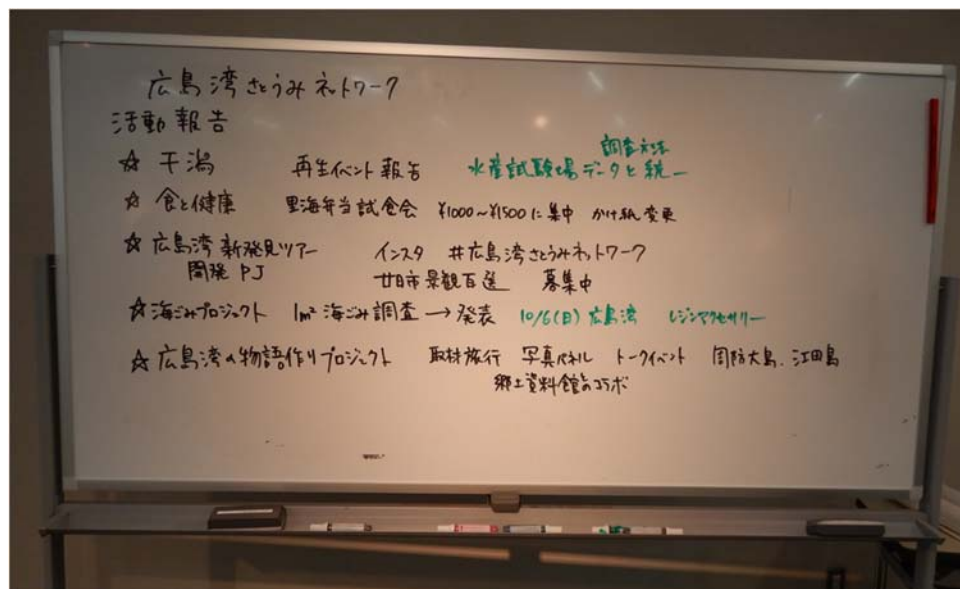 広島湾さとうみネットワーク
活動報告
調査方法
☆ 干潟 再生イベント報告 水産試験場データと統一
☆ 食と健康 里海弁当試食会 ¥1000～¥1500に集中 かけ紙変更
☆ 広島湾新発見ツアー インスタ #広島湾さとうみネットワーク
開発PJ 廿日市景観百選 募集中
☆ 海ごみプロジェクト 1m² 海ごみ調査 → 発表 10/6(日) 広島湾 レジンアクセサリー
☆ 広島湾の物語作りプロジェクト 取材旅行 写真パネル トークイベント 周防大島、江田島
郷土資料館とのコラボ